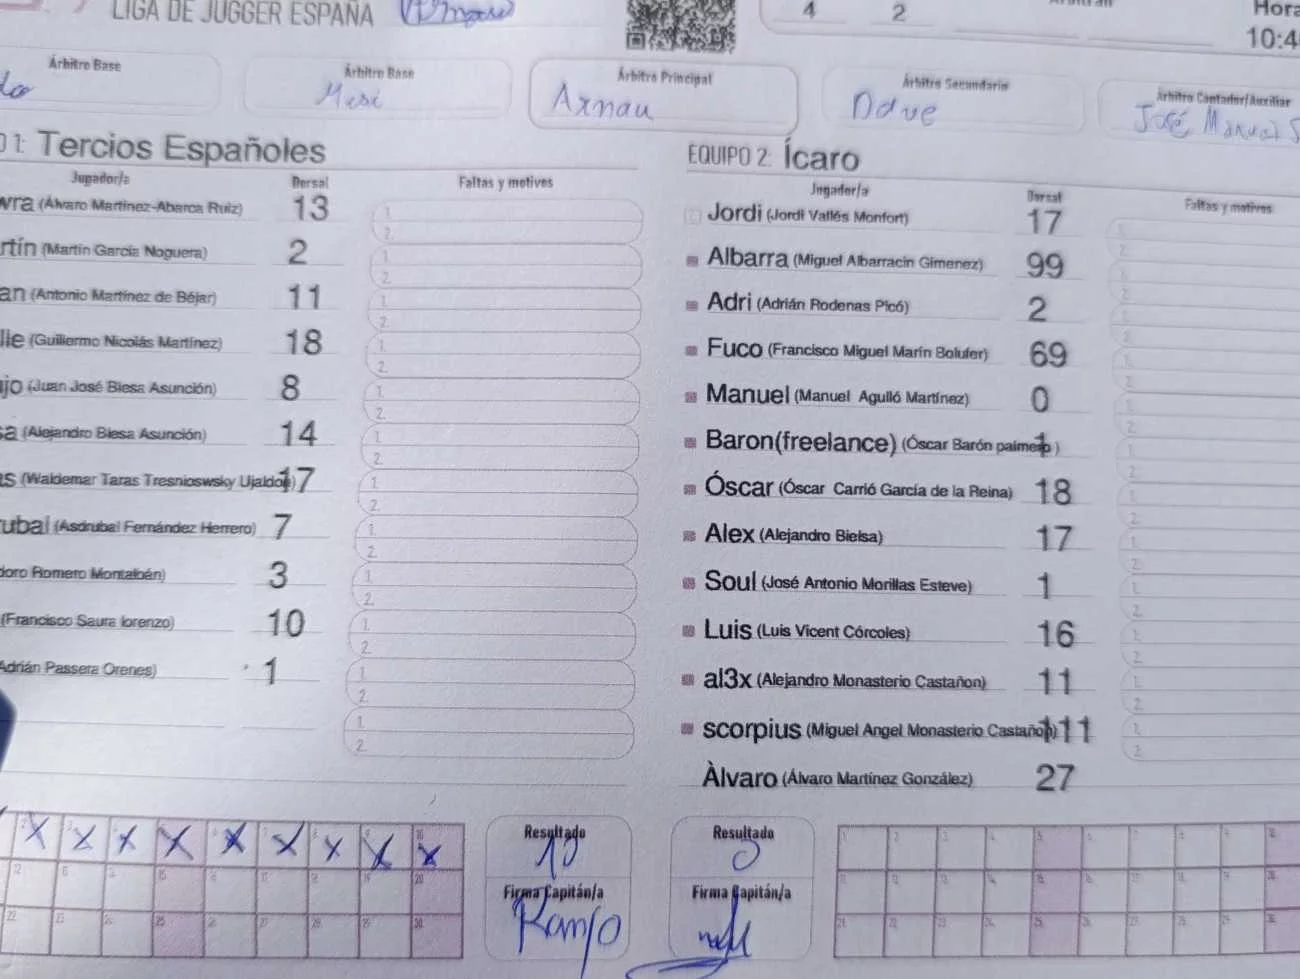 LIGA DE JUGGER ESPAÑA
4 2
Hora
10:4
Árbitro Base
Árbitro Base
Mesi
Árbitro Principal
Arnau
Árbitro Secundario
Dave
Árbitro Contador/Auxiliar
José Manuel S
O 1: Tercios Españoles
Jugador/a Dorsal Faltas y motivos
wra (Álvaro Martínez-Abarca Ruiz) 13
rtín (Martín García Noguera) 2
an (Antonio Martínez de Béjar) 11
lle (Guillermo Nicolás Martínez) 18
ujo (Juan José Blesa Asunción) 8
sa (Alejandro Blesa Asunción) 14
as (Waldemar Taras Tresniowsky Ujaldon) 17
rubal (Asdrubal Fernández Herrero) 7
doro Romero Montalbán) 3
(Francisco Saura lorenzo) 10
Adrián Passera Orenes) 1
EQUIPO 2: Ícaro
Jugador/a Dorsal Faltas y motivos
Jordi (Jordi Vallés Monfort) 17
Albarra (Miguel Albarracin Gimenez) 99
Adri (Adrián Rodenas Picó) 2
Fuco (Francisco Miguel Marín Bolufer) 69
Manuel (Manuel Agulló Martínez) 0
Baron(freelance) (Óscar Barón palmero ) 1
Óscar (Óscar Carrió García de la Reina) 18
Alex (Alejandro Bielsa) 17
Soul (José Antonio Morillas Esteve) 1
Luis (Luis Vicent Córcoles) 16
al3x (Alejandro Monasterio Castañon) 11
scorpius (Miguel Angel Monasterio Castañon) 111
Àlvaro (Álvaro Martínez González) 27
Resultado
10
Firma Capitán/a
Resultado
0
Firma Capitán/a